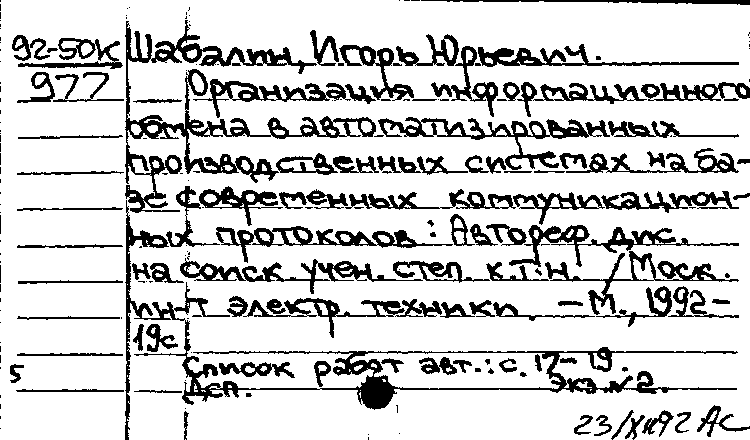 92-50К Шабалин, Игорь Юрьевич.
977 Организация информационного
обмена в автоматизированных
производственных системах на ба-
зе современных коммуникацион-
ных протоколов : Автореф. дис.
на соиск. учен. степ. к.т.н. / Моск.
ин-т электр. техники. – М., 1992 –
19с
Список работ авт.: с. 17–19.
5 Дсп. Экз. №2.
23/XII92 АС